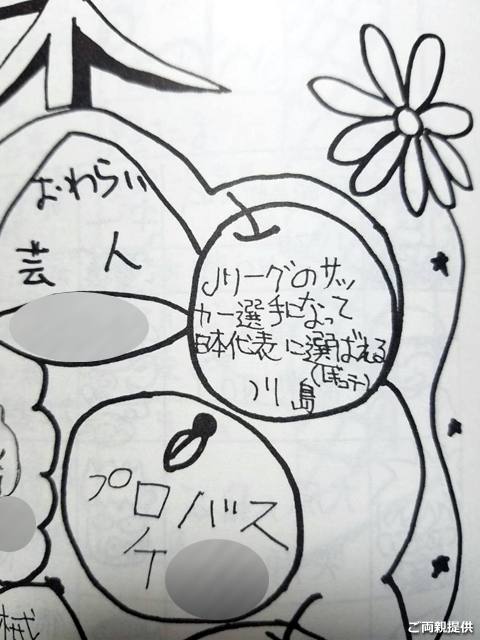 おわらい
芸人
Jリーグのサッ
カー選手になって
日本代表に選ばれる
川島
プロバス
ケ
械
ご両親提供